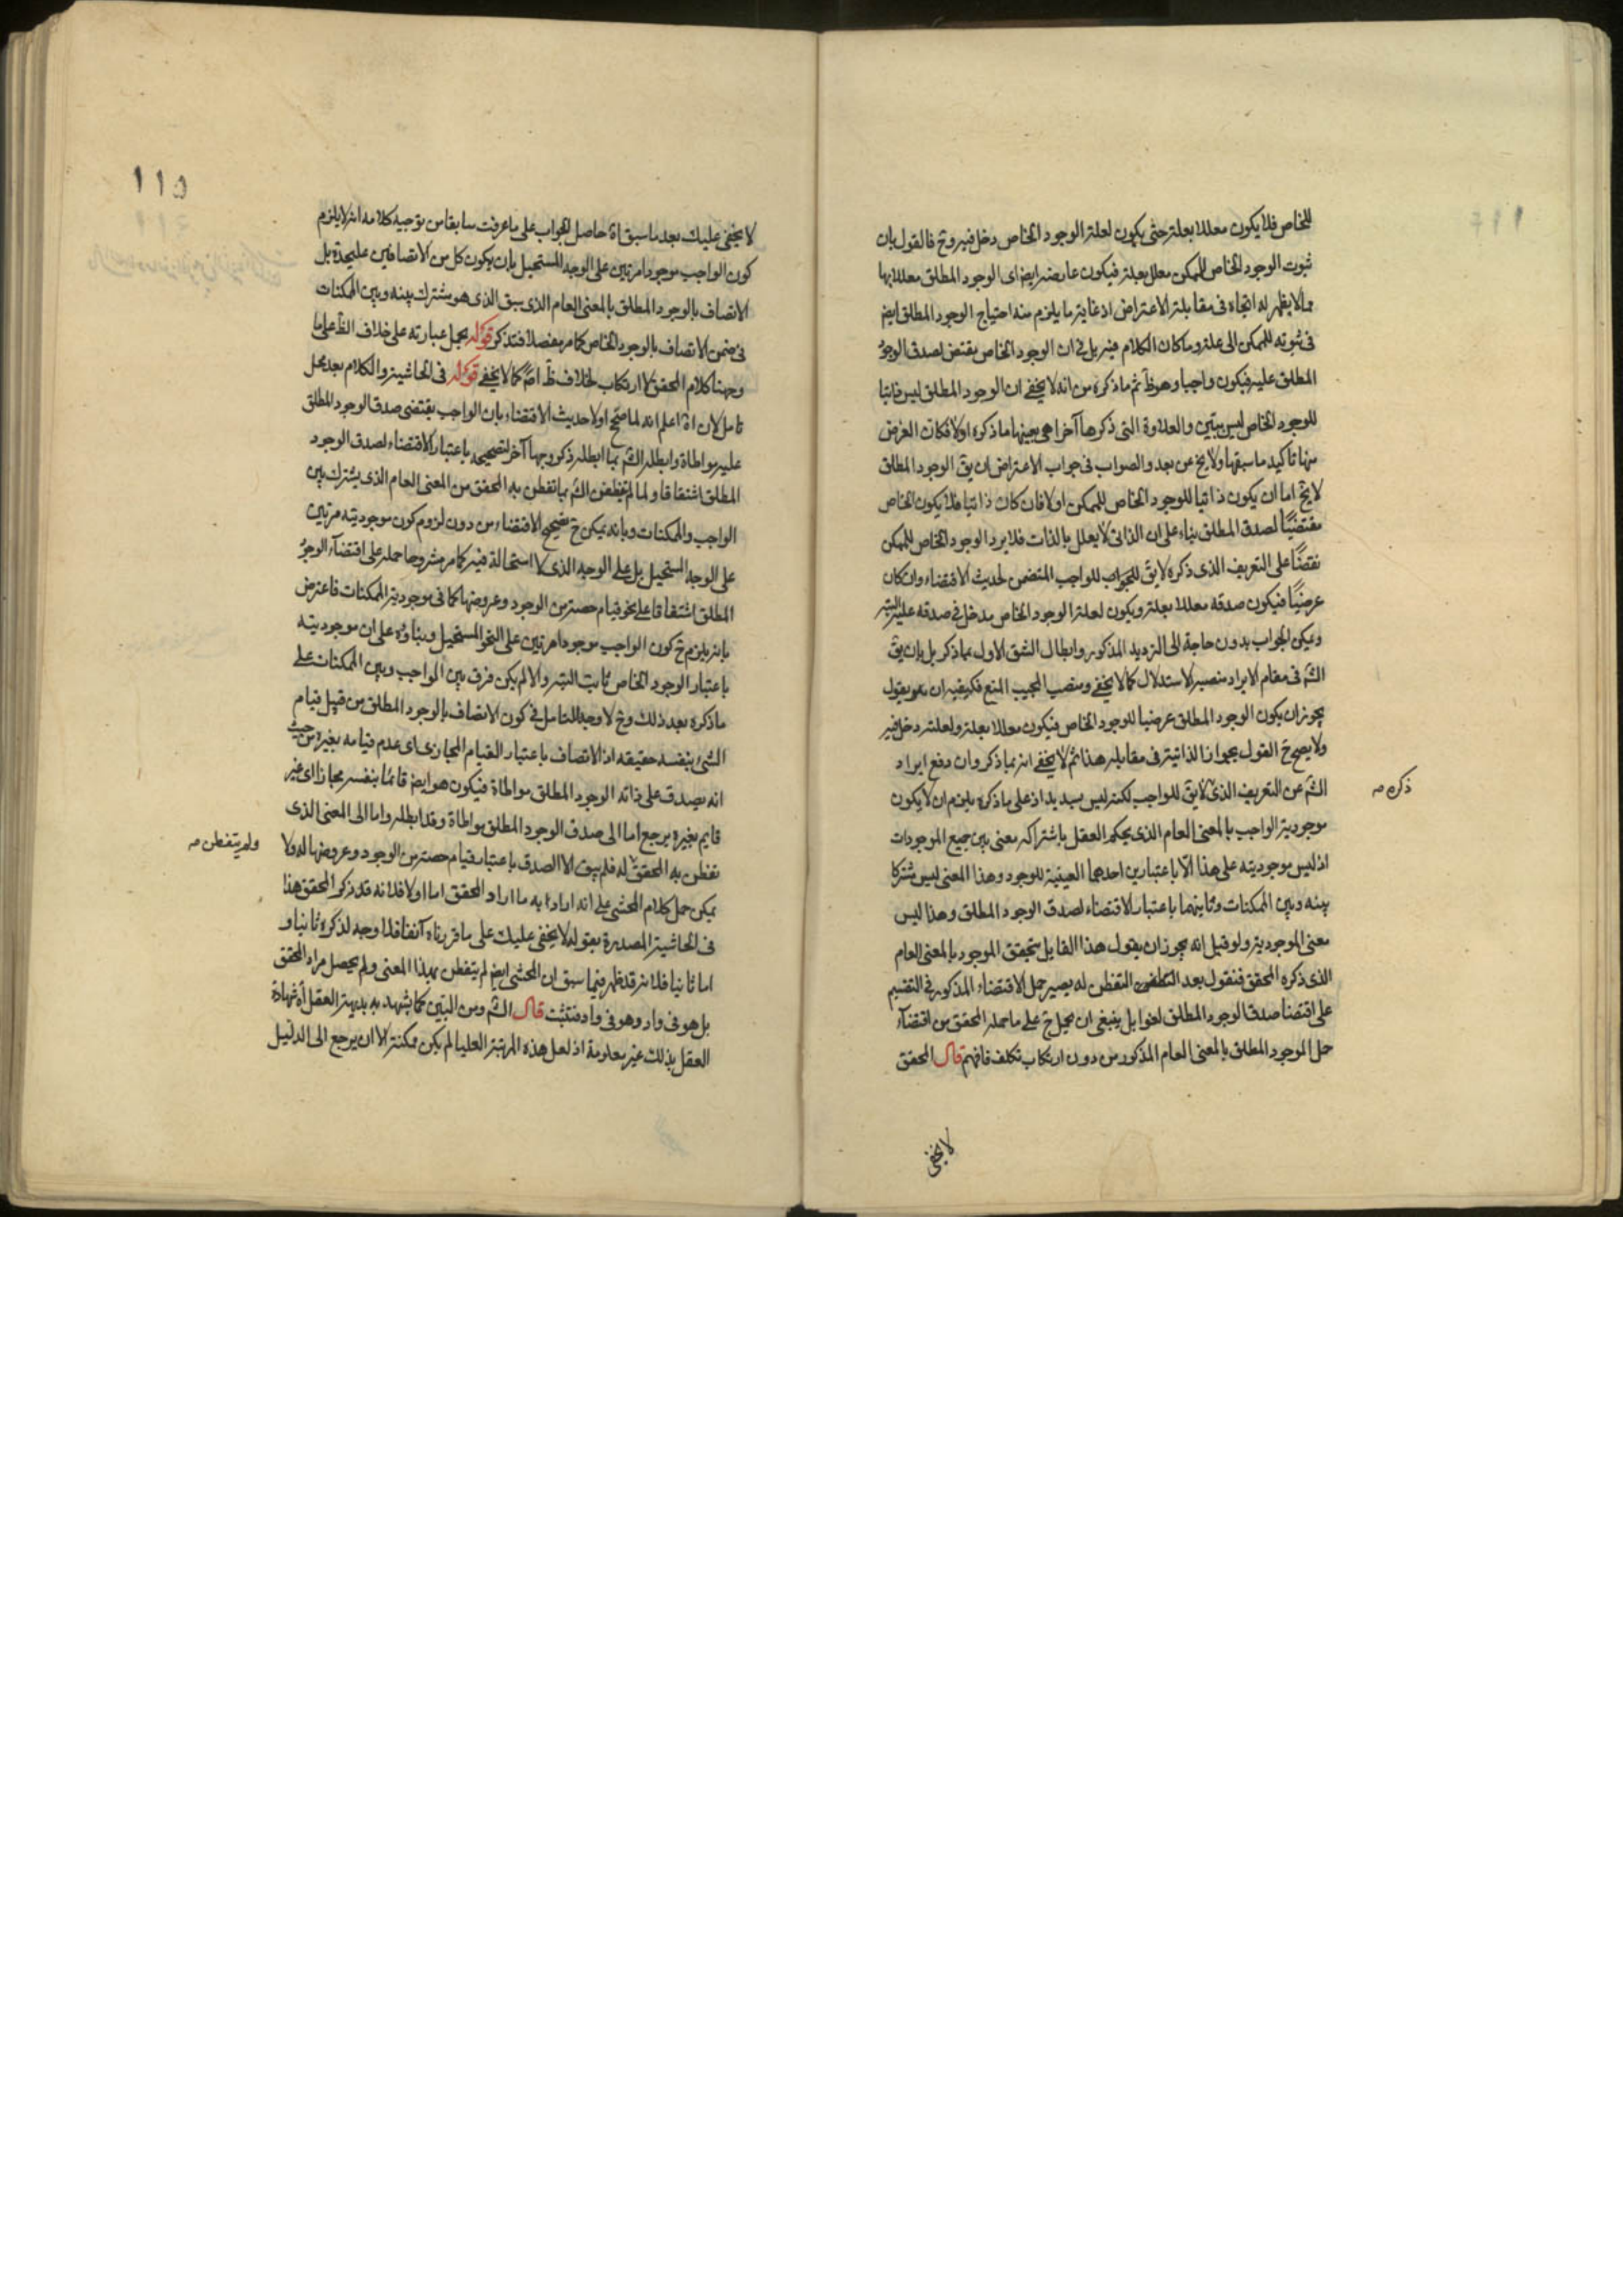 للخاص فلا يكون معللا بعلته حتى يكون لعلة الوجود الخاص دخل فيه وح فالقول بان
ثبوت الوجود الخاص للممكن معلل بعلة فيكون عارضه ايض اى الوجود المطلق معللا بها
مما لا يظهر له اتجاه فى مقابلة الاعتراض اذ غاية ما يلزم منه احتياج الوجود المطلق ايض
فى ثبوته للممكن الى علة وما كان الكلام فيه بل فى ان الوجود الخاص يقتضى لصدق الوجود
المطلق عليه فيكون واجبا وهو ظ ثم ما ذكره من انه لا يخفى ان الوجود المطلق ليس ذاتيا
للوجود الخاص ليس ببين والعلاوة التى ذكرها آخرا هى بعينها ما ذكره اولا فكان الغرض
منها تاكيد ما سبقها ولا يخ عن بعد والصواب فى جواب الاعتراض ان يق الوجود المطلق
لا يخ اما ان يكون ذاتيا للوجود الخاص للممكن اولا فان كان ذاتيا فلا يكون الخاص
مقتضيًا لصدق المطلق بناء على ان الذاتى لا يعلل بالذات فلا يرد الوجود الخاص للممكن
نقضًا على التعريف الذى ذكره لايق للجواب للواجب المتضمن لحديث الاقتضاء وان كان
عرضيًا فيكون صدقه معللا بعلة ويكون لعلة الوجود الخاص مدخل فى صدقه عليه البتة
ويمكن الجواب بدون حاجة الى الترديد المذكور وابطال الشق الاول بما ذكر بل بان يق
الش فى مقام الايراد منصبه الاستدلال كما لا يخفى ومنصب المجيب المنع فيكفيه ان يقول
يجوز ان يكون الوجود المطلق عرضيا للوجود الخاص فيكون معللا بعلة ولعلته دخل فيه
ولا يصح ح القول بجواز الذاتية فى مقابله هذا ثم لا يخفى انه بما ذكر وان دفع ايراد
الش عن التعريف الذى لايق للواجب لكنه ليس بسديد اذ على ما ذكره يلزم ان لا يكون
ذكره صه
موجودية الواجب بالمعنى العام الذى يحكم العقل باشتراكه معنى بين جميع الموجودات
اذ ليس موجوديته على هذا الا باعتبارين احدهما العينية للوجود وهذا المعنى ليس مشتركا
بينه وبين الممكنات وثانيهما باعتبار الاقتضاء لصدق الوجود المطلق وهذا ليس
معنى الموجودية ولو قيل انه يجوز ان يقول هذا القايل بتحقق الموجود بالمعنى العام
الذى ذكره المحقق فنقول بعد التفطن له يصير حمل الاقتضاء المذكور فى التقسيم
على اقتضا صدق الوجود المطلق لغوا بل ينبغى ان يحمل ح على ما حمله المحقق من اقتضآء
حمل الموجود المطلق بالمعنى العام المذكور من دون ارتكاب تكلف فافهم قال المحقق
لا يخفى
١١٥
لا يخفى عليك بعد ما سبق اة حاصل الجواب على ما عرفت سابقا من توجيه كلامه انه لا يلزم
كون الواجب موجودا مرتين على الوجه المستحيل بان يكون كل من الاتصافين عليحدة بل
الاتصاف بالوجود المطلق بالمعنى العام الذى سبق الذى هو مشترك بينه وبين الممكنات
فى ضمن الاتصاف بالوجود الخاص كما مر مفصلا فتذكر قوله يحمل عبارته على خلاف الظ على ما
وجهنا كلام المحقق لا ارتكاب لخلاف ظ اصًا كما لا يخفى قوله فى الحاشية والكلام بعد محل
تامل لان اة اعلم انه لما صحح اولا حديث الاقتضاء بان الواجب يقتضى صدق الوجود المطلق
عليه مواطاة وابطله الش بما ابطله ذكر وجها آخر لتصحيحه باعتبار الاقتضاء لصدق الوجود
المطلق اشتقاقا ولما لم يتفطن الش بما تفطن به المحقق من المعنى العام الذى يشترك بين
الواجب والممكنات وبانه يمكن ح تصحيح الاقتضاء من دون لزوم كون موجوديته مرتين
على الوجه المستحيل بل على الوجه الذى لا استحالة فيه كما مر مشروحا حمله على اقتضآء الوجود
المطلق اشتقاقا على نحو قيام حصة من الوجود وعروضها كما فى موجودية الممكنات فاعترض
بانه يلزم ح كون الواجب موجودا مرتين على النحو المستحيل وبناؤه على ان موجوديته
باعتبار الوجود الخاص ثابت البتة والا لم يكن فرق بين الواجب وبين الممكنات على
ما ذكره بعد ذلك وح لا وجه للتامل فى كون الاتصاف بالوجود المطلق من قبيل قيام
الشئ بنفسه حقيقه اذ الاتصاف باعتبار القيام المجازى اى عدم قيامه بغيره من حيث
انه يصدق على ذاته الوجود المطلق مواطاة فيكون هو ايض قائمًا بنفسه مجازا اى غير
قايم بغيره يرجع اما الى صدق الوجود المطلق مواطاة وقد ابطله واما الى المعنى الذى
تفطن به المحقق له فلم يبق الا الصدق باعتبار قيام حصة من الوجود وعروضها له ولا
ولم يتفطن صه
يمكن حمل كلام المحشى على انه اراد به ما اراد المحقق اما اولا فلانه قد ذكر المحقق هذا
فى الحاشية المصدرة بقوله لا يخفى عليك على ما قررناه آنفا فلا وجه لذكره ثانيا و
اما ثانيا فلانه قد ظهر فيما سبق ان المحشى ايض لم يتفطن بهذا المعنى ولم يحصل مراد المحقق
بل هو فى واد وهو فى واد فتثبت قال الش ومن البين كما يشهد به بديهة العقل اة شهادة
العقل بذلك غير معلومة اذ لعل هذه المرتبة العليا لم يكن ممكنة الا ان يرجع الى الدليل